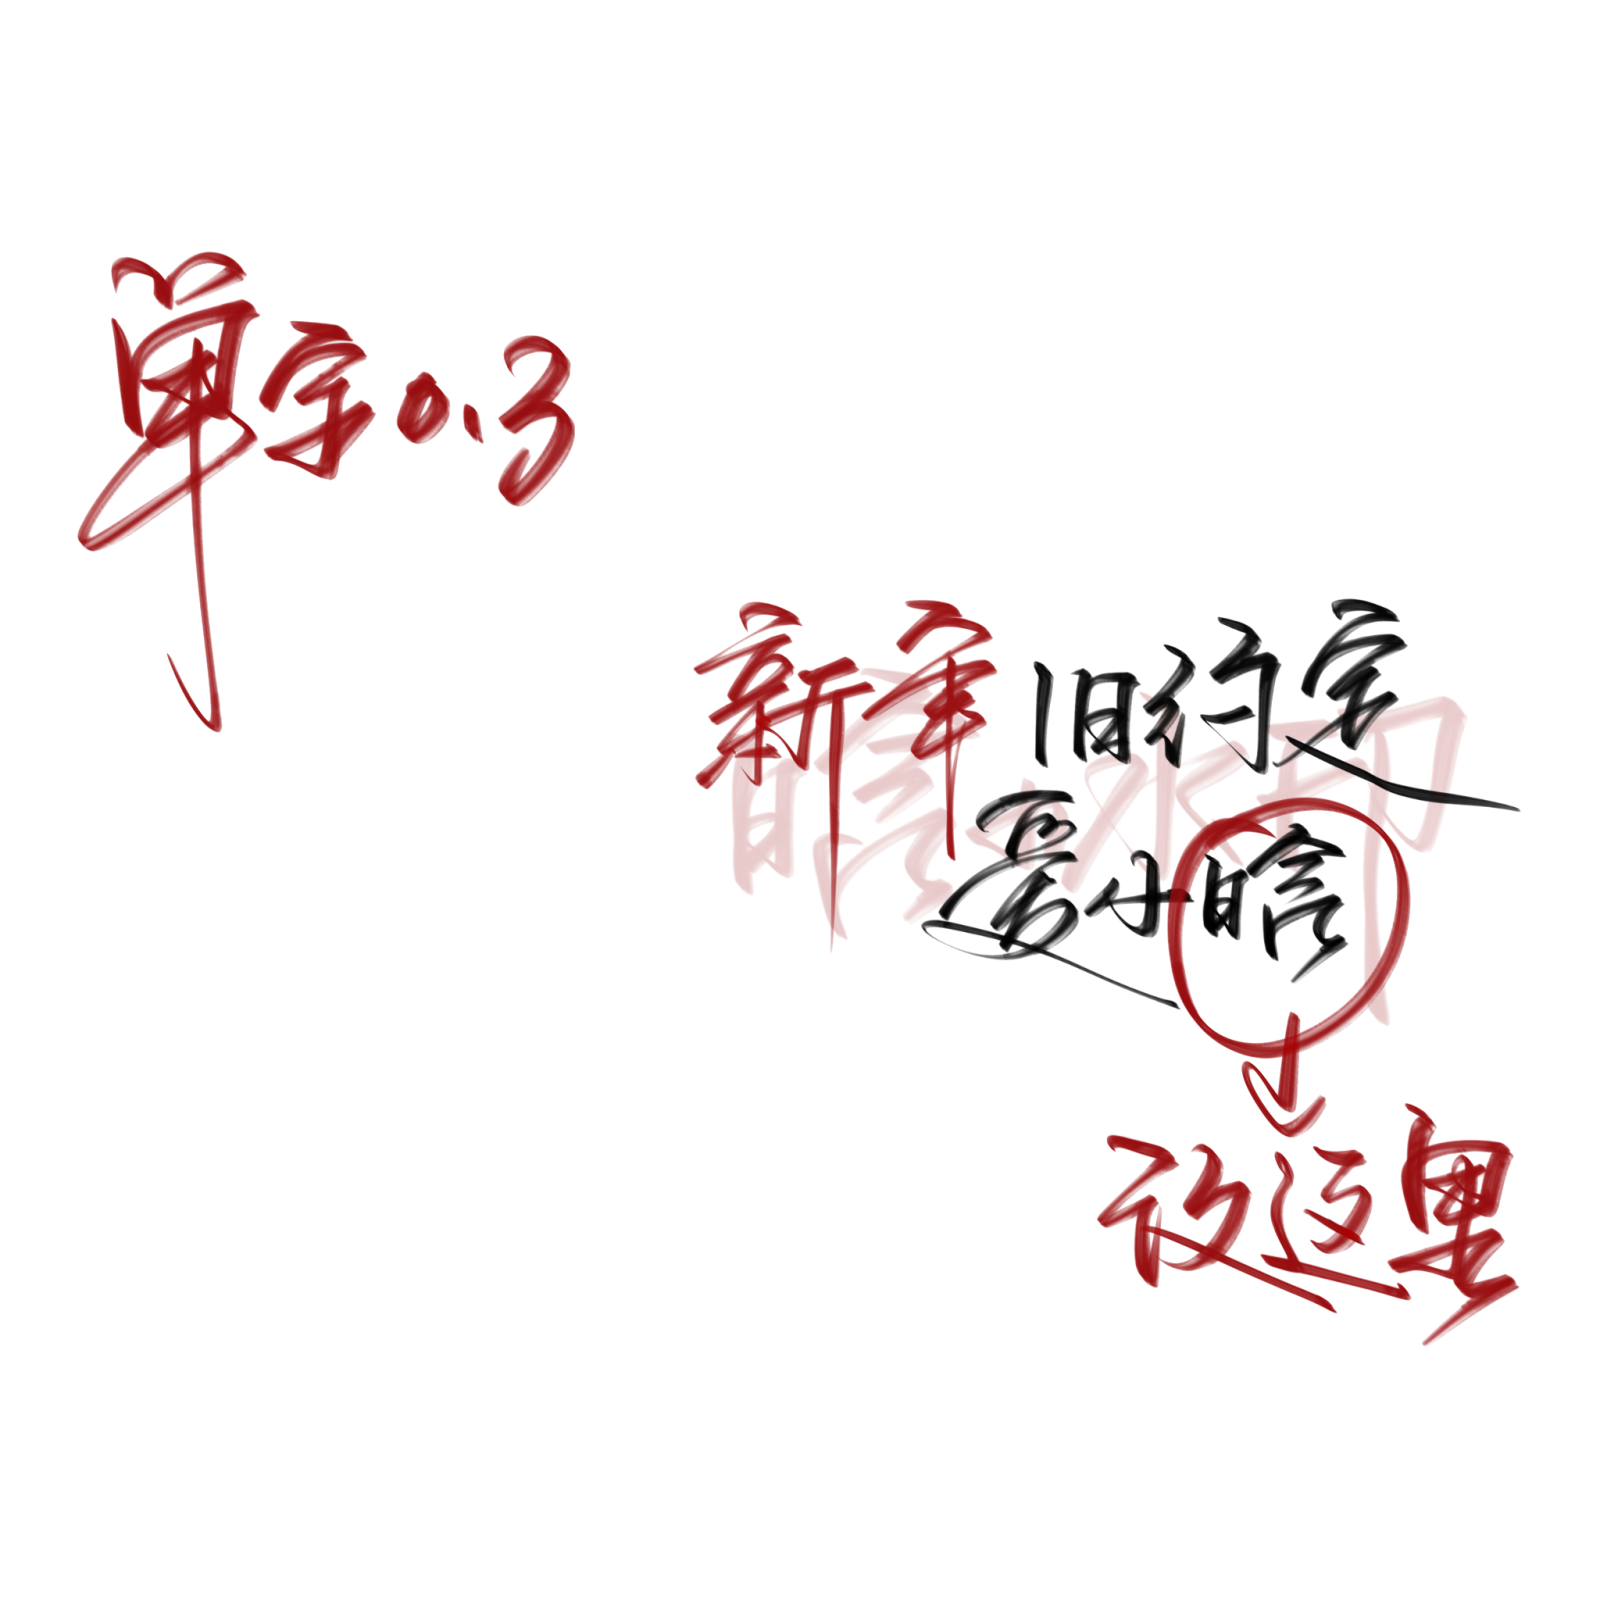 单字0.3
新年旧约定
爱小晗
放这里